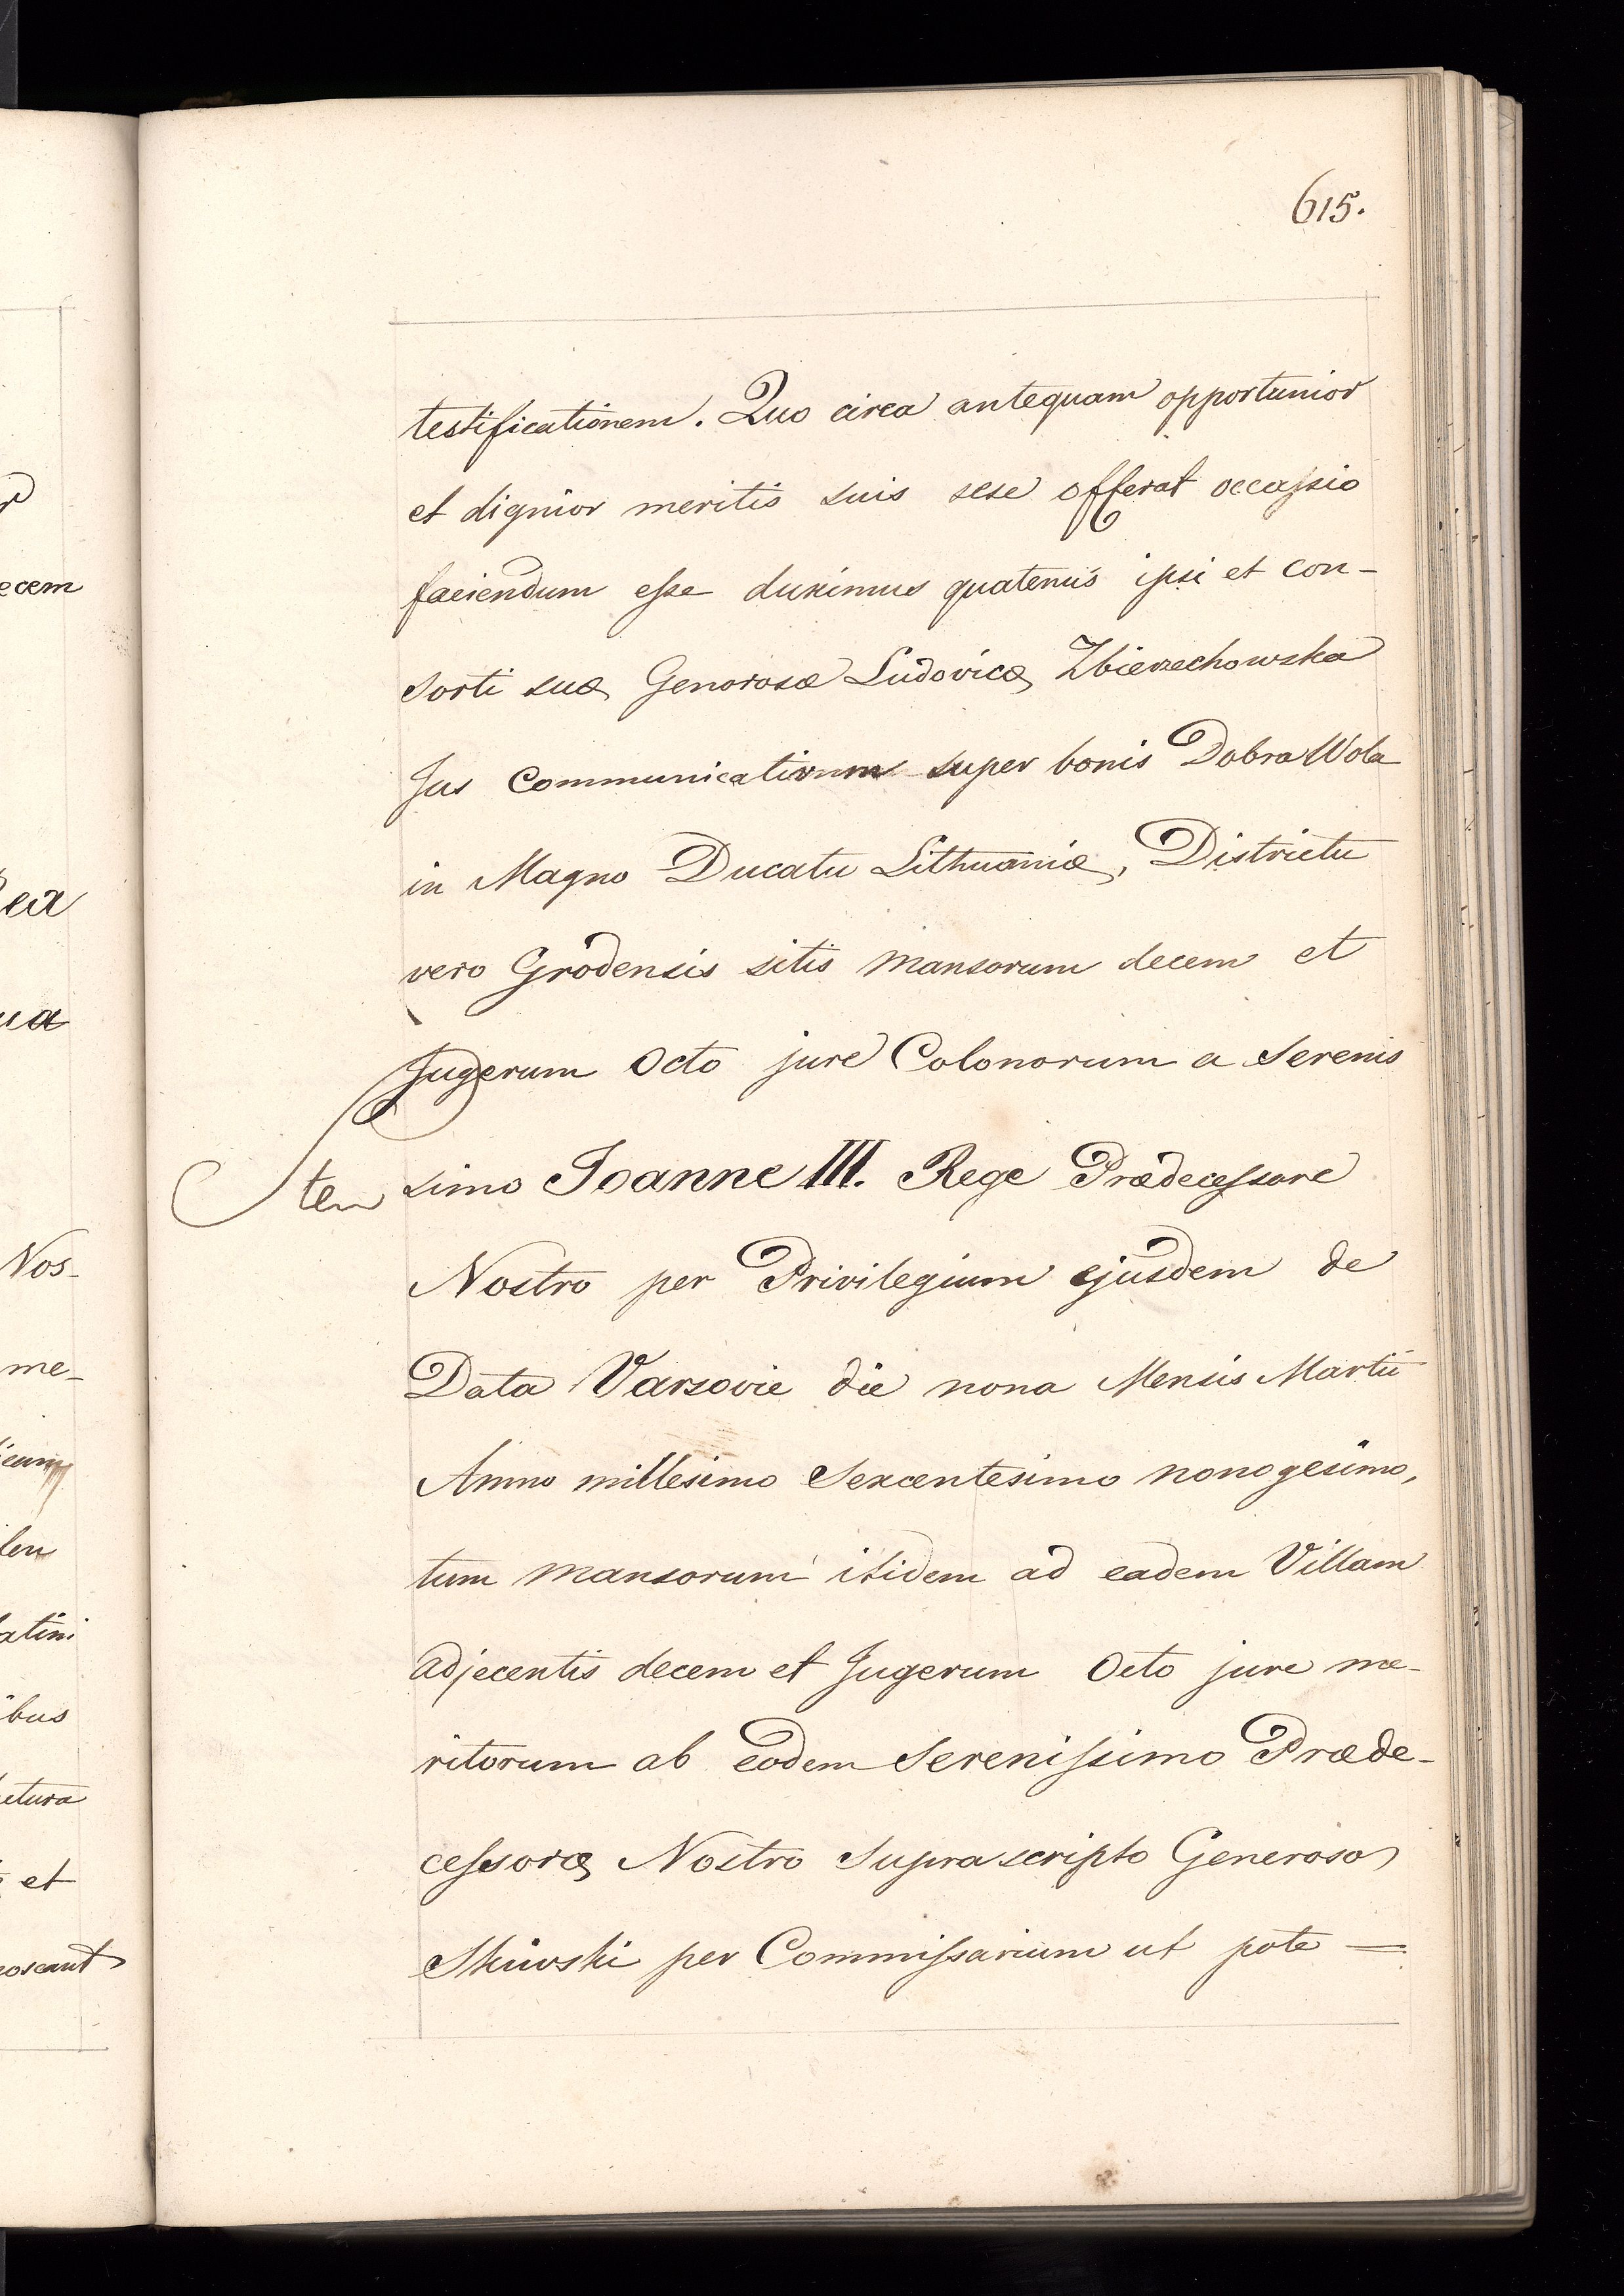 615.
testificationem. Quo circa antequam opportunior
et dignior meritis suis sese offerat occassio
faciendum esse duximus quatenus ipsi et con-
sorti suæ Genorosæ Ludovicæ Zbierzechowska
Jus Communicativum super bonis Dobra Wola
in Magno Ducatu Lithuaniæ, Districtu
vero Grodensis sitis mansorum decem et
Jugerum Octo jure Colonorum a Serenis
ten simo Joanne III. Rege Prædecessore
Nostro per Privilegium ejusdem de
Data Varsovie die nona Mensis Martii
Anno millesimo Sexcentesimo nonogesimo,
tum mansorum itidem ad eadem Villam
adjecentis decem et Jugerum Octo jure me-
ritorum ab eodem Serenissimo Præde-
cessoræ Nostro Supra scripto Generoso
per Commissarium ut pote =
ecem
Nos-
me-
atini
ibus
etura
et